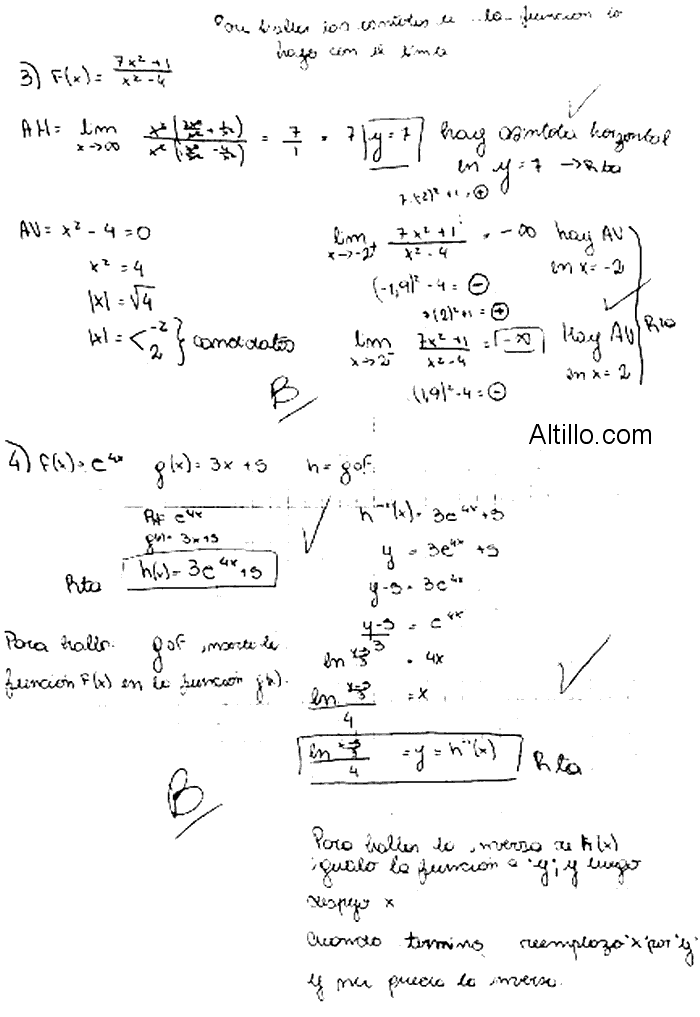 Para hallar los ceros de la función lo
hago con el limite
3) F(x) = 7x² + 1 / x² - 4
AH = lim x→∞ x²(7x²/x² + 1/x²) / x²(x²/x² - 4/x²) = 7/1 = 7 | y = 7 hay asíntota horizontal
en y = 7 → Rta
7.(-2)² + 1 = ⊕
AV = x² - 4 = 0
lim x→-2⁺ 7x² + 1 / x² - 4 = -∞ hay AV
en x = -2
x² = 4
(-1,9)² - 4 = ⊖
|x| = √4
7(2)² + 1 = ⊕
|x| = < -2 2 } candidatos
lim x→2⁻ 7x² + 1 / x² - 4 = -∞ Hay AV
en x = 2
Rta
(1,9)² - 4 = ⊖
B
Altillo.com
4) F(x) = e^4x g(x) = 3x + 5 h = goF
F(x) = e^4x
g(x) = 3x + 5
Rta h(x) = 3e^4x + 5
Para hallar goF inserto la
función F(x) en la función g(x).
h⁻¹(x) = 3e^4x + 5
y = 3e^4x + 5
y - 5 = 3e^4x
y - 5 / 3 = e^4x
ln x-5/3 = 4x
ln x-5/3 / 4 = x
ln x-5/3 / 4 = y = h⁻¹(x) Rta
B
Para hallar la inversa de h(x)
igualo la función a "y", y luego
despejo x
Cuando termino reemplazo "x" por "y"
y me queda la inversa.